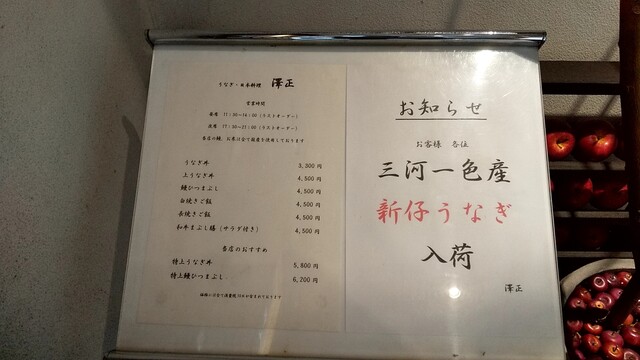 うなぎ・日本料理 澤正
営業時間
昼席 11:30〜14:00(ラストオーダー)
夜席 17:30〜21:00(ラストオーダー)
うなぎ丼 3,300円
上うなぎ丼 4,500円
鰻ひつまぶし 4,500円
白焼きご飯 4,500円
4,500円
和牛まぶし膳(サラダ付き) 4,500円
当店のおすすめ
特上うなぎ丼 5,800円
特上鰻ひつまぶし 6,200円
お知らせ
お客様 各位
三河一色産
新仔うなぎ
入荷
澤正